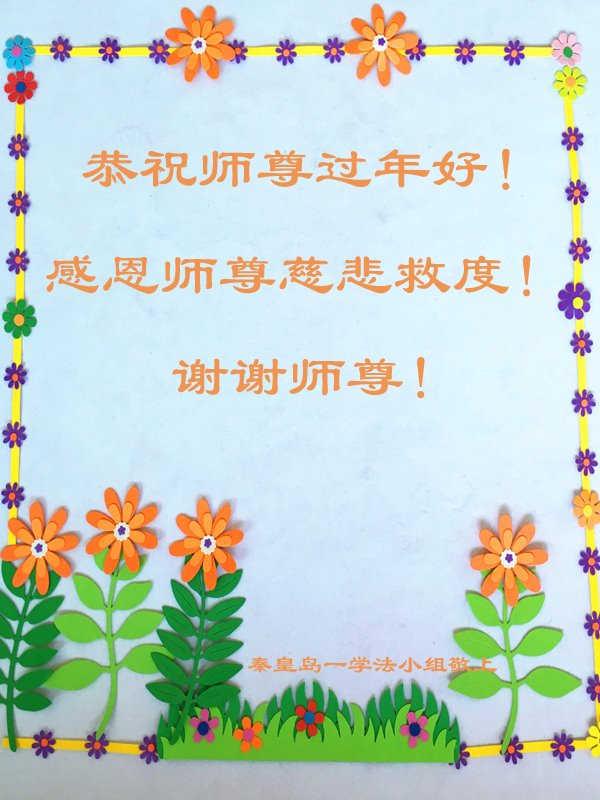 恭祝师尊过年好!
感恩师尊慈悲救度!
谢谢师尊!
秦皇岛一学法小组敬上